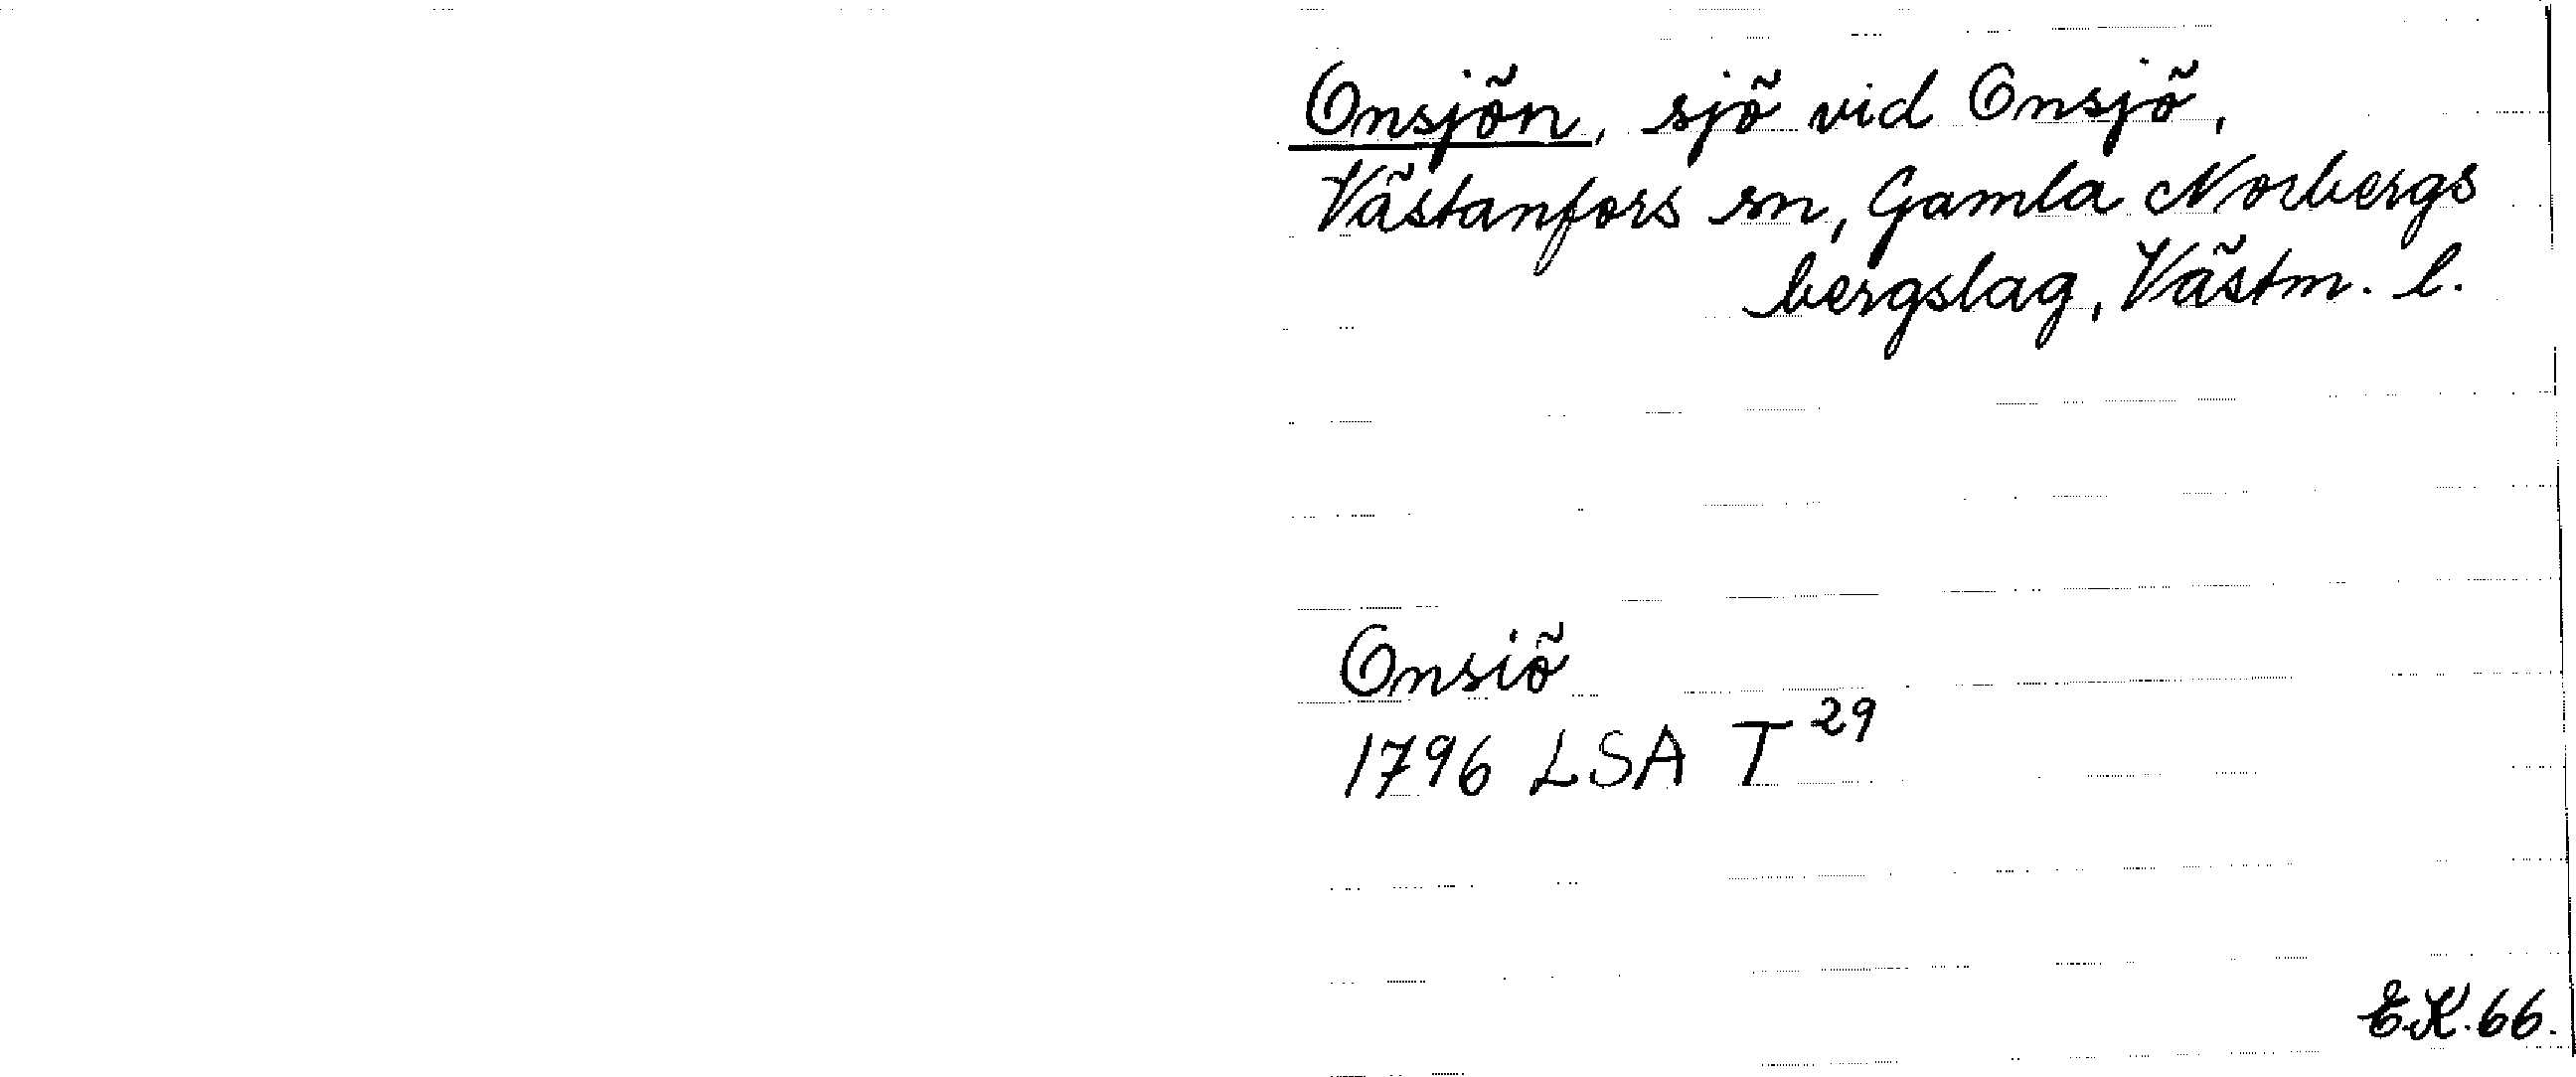 Onsjön, sjö vid Onsjö,
Västanfors sn, Gamla Norbergs
bergslag, Västm. l.
Onsiö
1796 LSA T 29
E.K. 66.